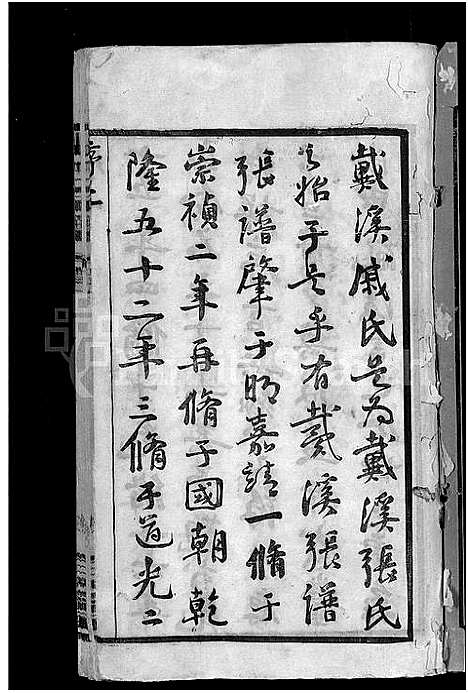 戴溪戚氏是为戴溪張氏
之始于是乎有戴溪張譜
張譜肇于明嘉靖一脩于
崇禎二年再脩于國朝乾
隆五十二年三脩于道光二
序